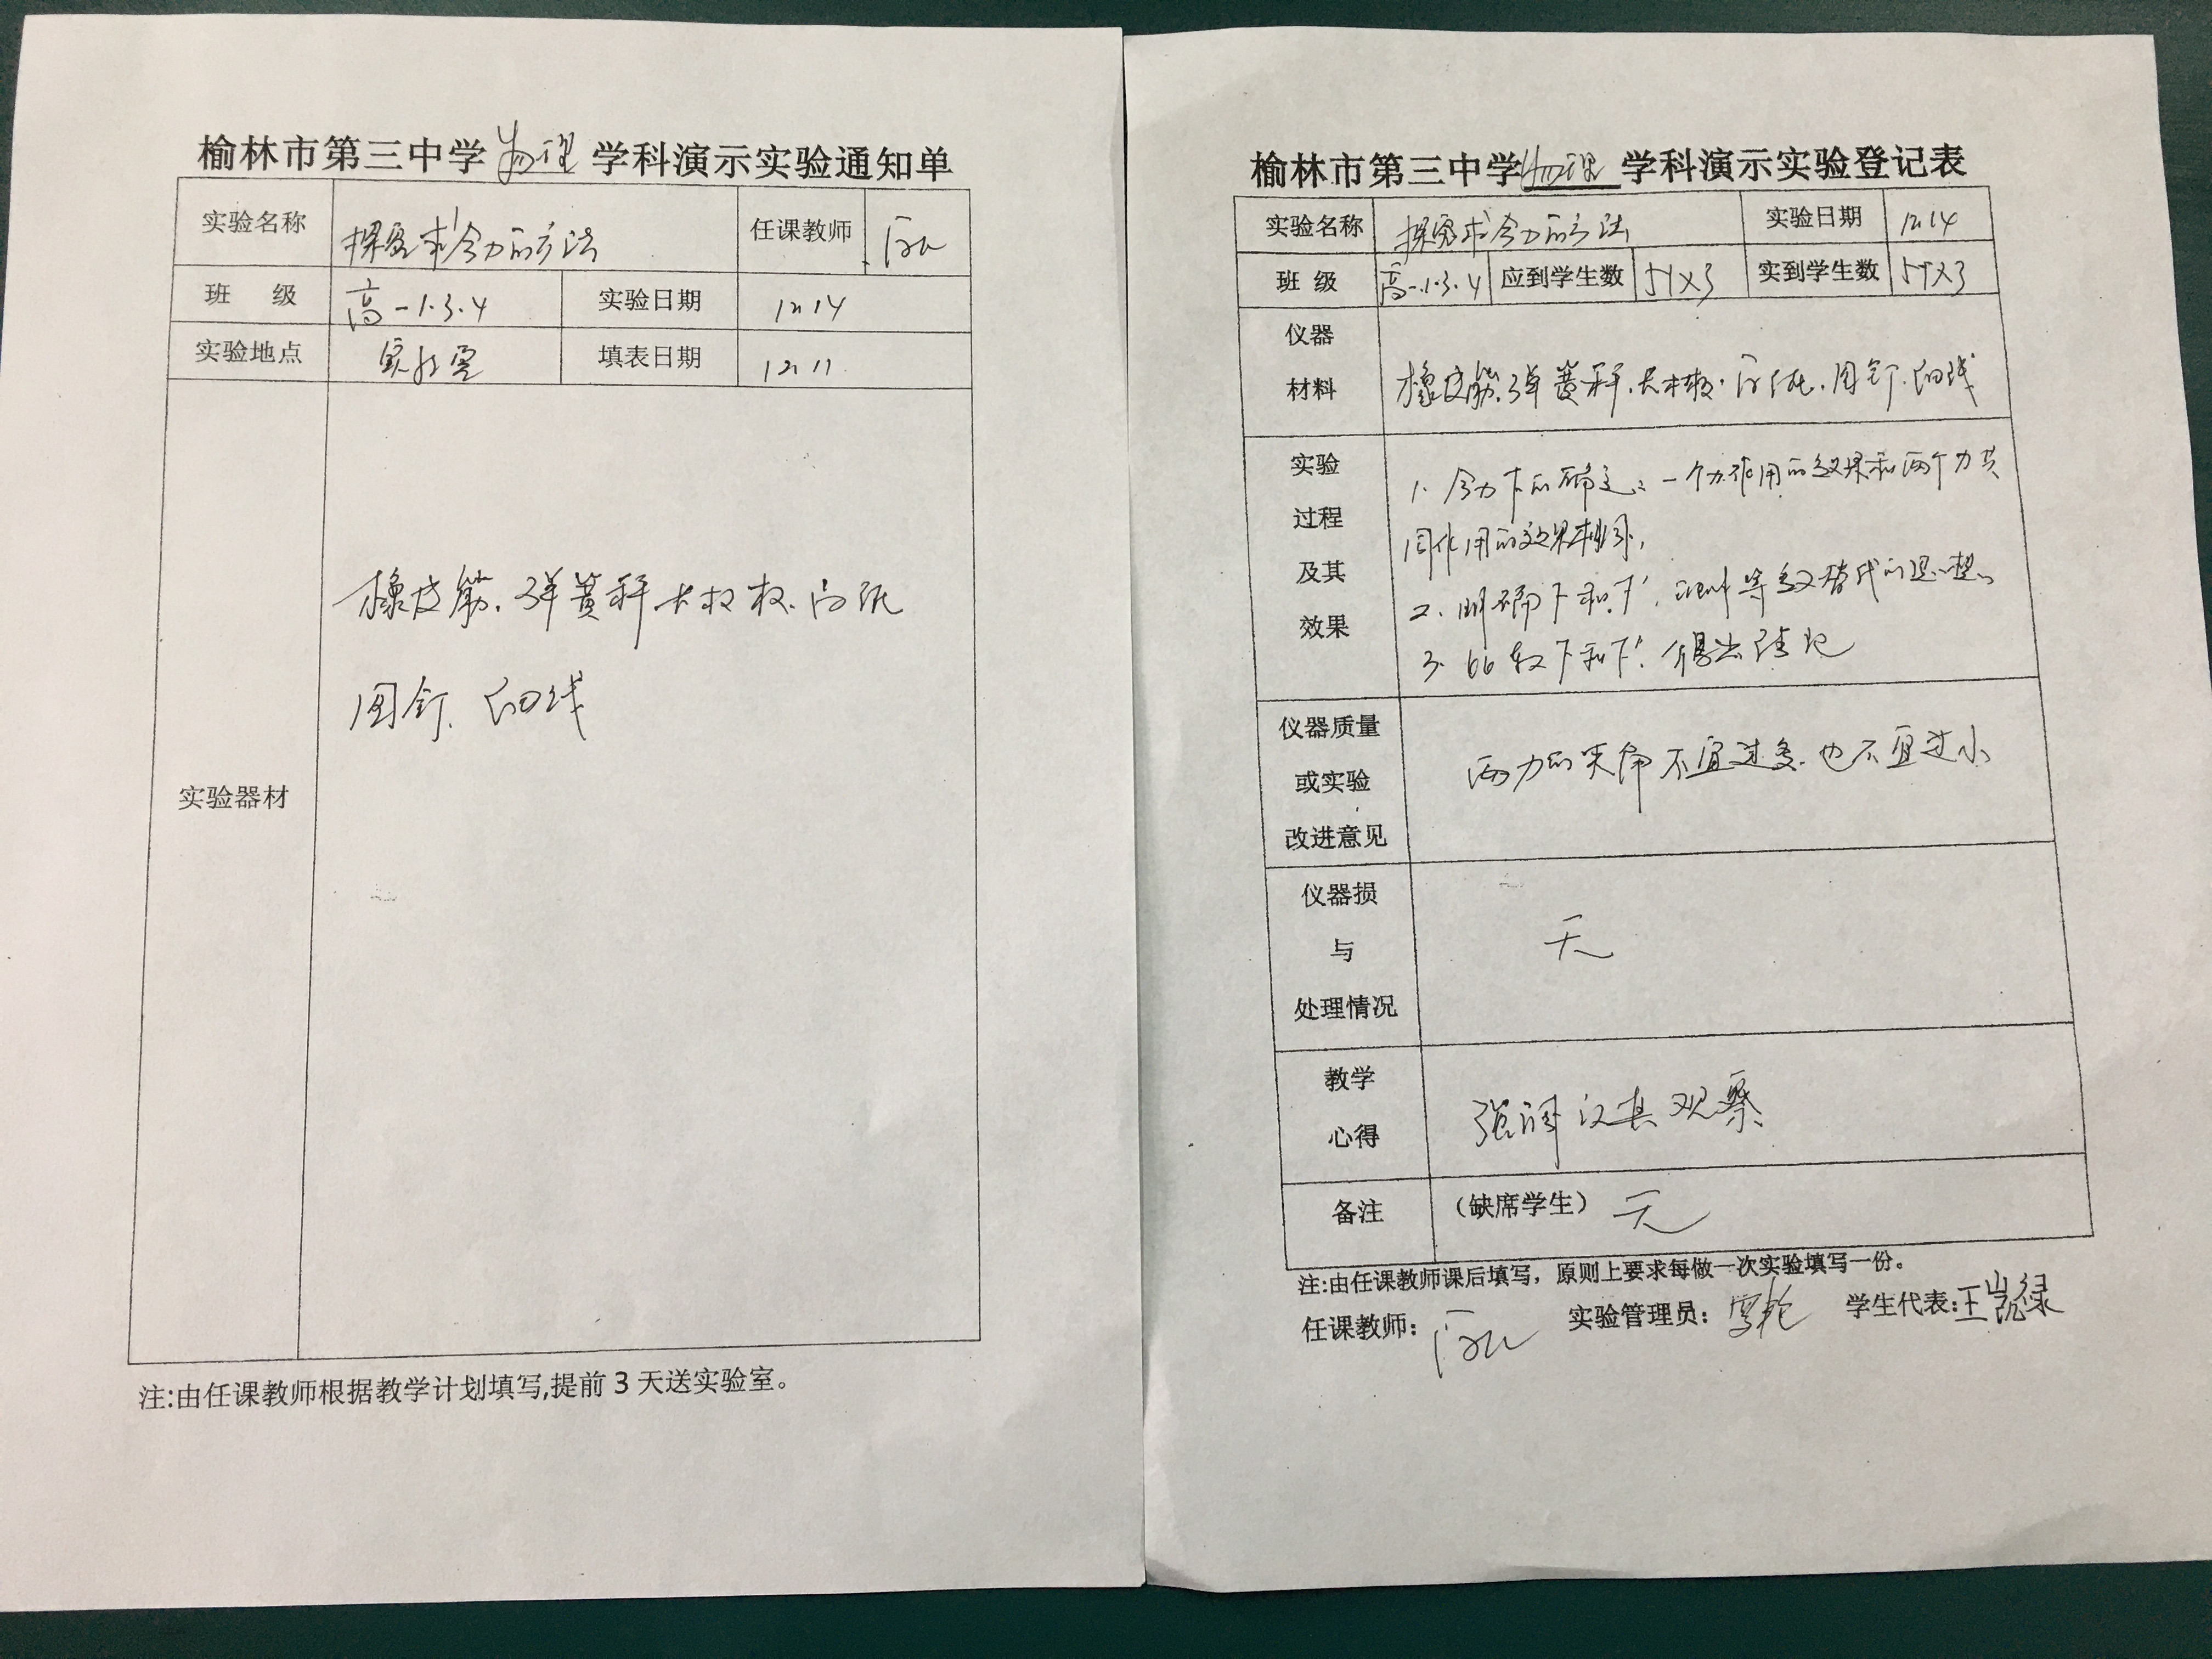 榆林市第三中学物理学科演示实验通知单
实验名称 探究求合力的方法 任课教师
班 级 高一1.3.4 实验日期 12.14
实验地点 实验室 填表日期 12.11
实验器材
橡皮筋、弹簧秤、木板、白纸
图钉、细线
注:由任课教师根据教学计划填写,提前3天送实验室。
榆林市第三中学物理学科演示实验登记表
实验名称 探究求合力的方法 实验日期 12.14
班 级 高一.1.3.4 应到学生数 实到学生数
仪器
材料
橡皮筋、弹簧秤、木板、白纸、图钉、细线
实验
过程
及其
效果
1. 合力F的确定:一个力作用的效果和两个力共
同作用的效果相同,
2. 明确F和F′, 等效替代的思想
3. 比较F和F′.得出结论
仪器质量
或实验
改进意见
两力的夹角不宜过大.也不宜过小
仪器损
与
处理情况
无
教学
心得
强调认真观察
备注 (缺席学生) 无
注:由任课教师课后填写，原则上要求每做一次实验填写一份。
任课教师: 实验管理员: 学生代表: